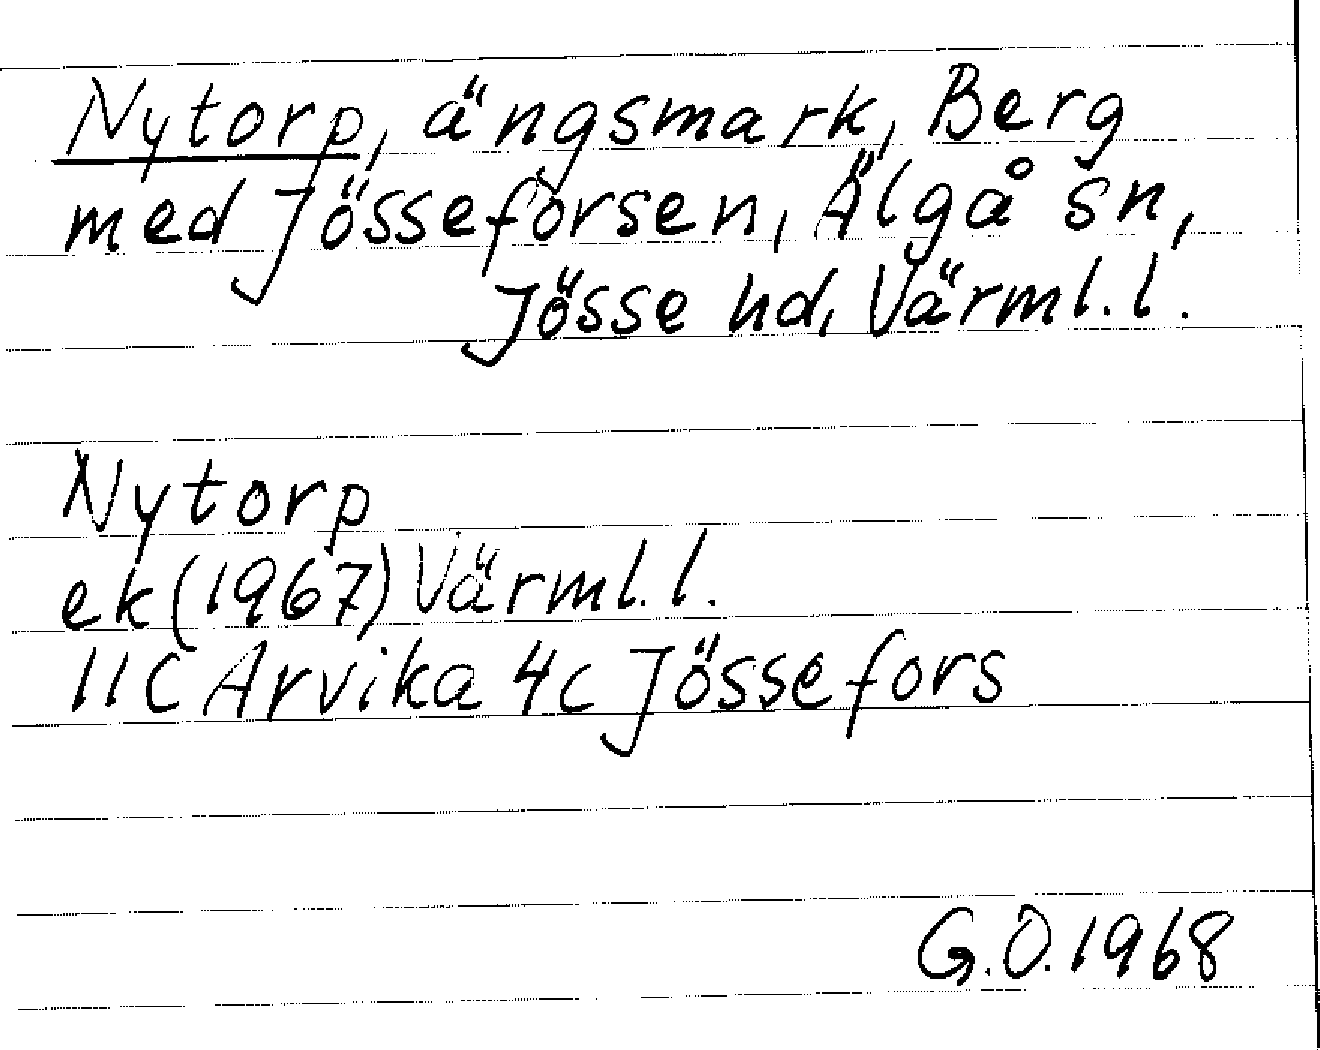 Nytorp, ängsmark, Berg
med Jösseforsen, Älgå sn,
Jösse hd, Värml. l.
Nytorp
ek (1967) Värml. l.
11C Arvika 4c Jössefors
G.O. 1968